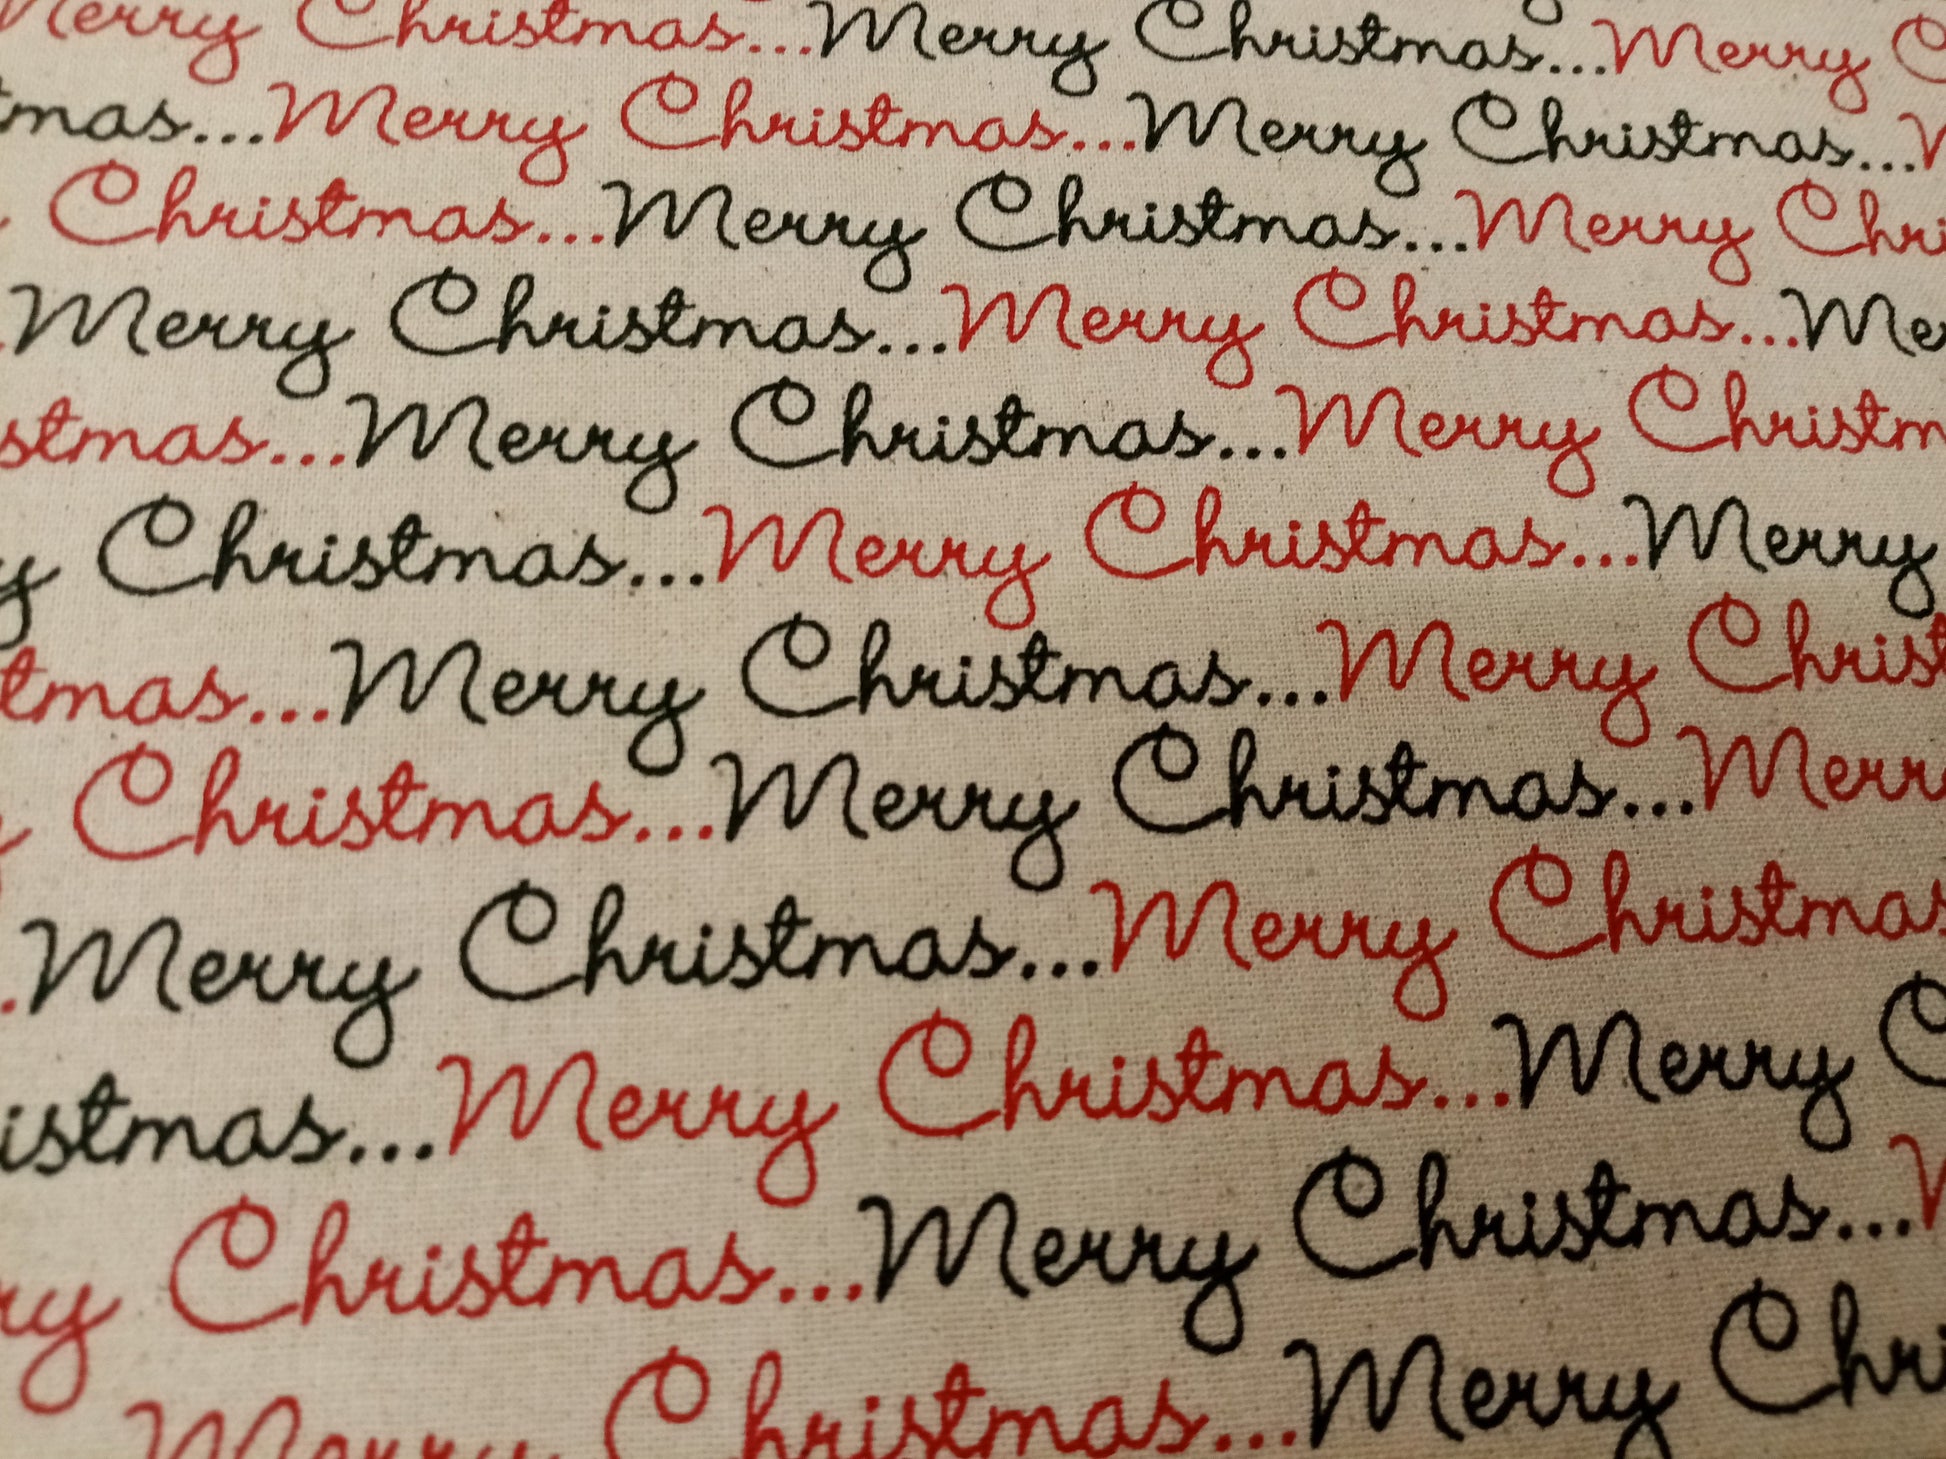 Merry Christmas...Merry Christmas...Merry C
tmas...Merry Christmas...Merry Christmas...M
Christmas...Merry Christmas...Merry Chri
Merry Christmas...Merry Christmas...Me
stmas...Merry Christmas...Merry Christm
y Christmas...Merry Christmas...Merry
tmas...Merry Christmas...Merry Christ
y Christmas...Merry Christmas...Merry
.Merry Christmas...Merry Christmas
istmas...Merry Christmas...Merry C
ry Christmas...Merry Christmas...M
Merry Christmas...Merry Chri